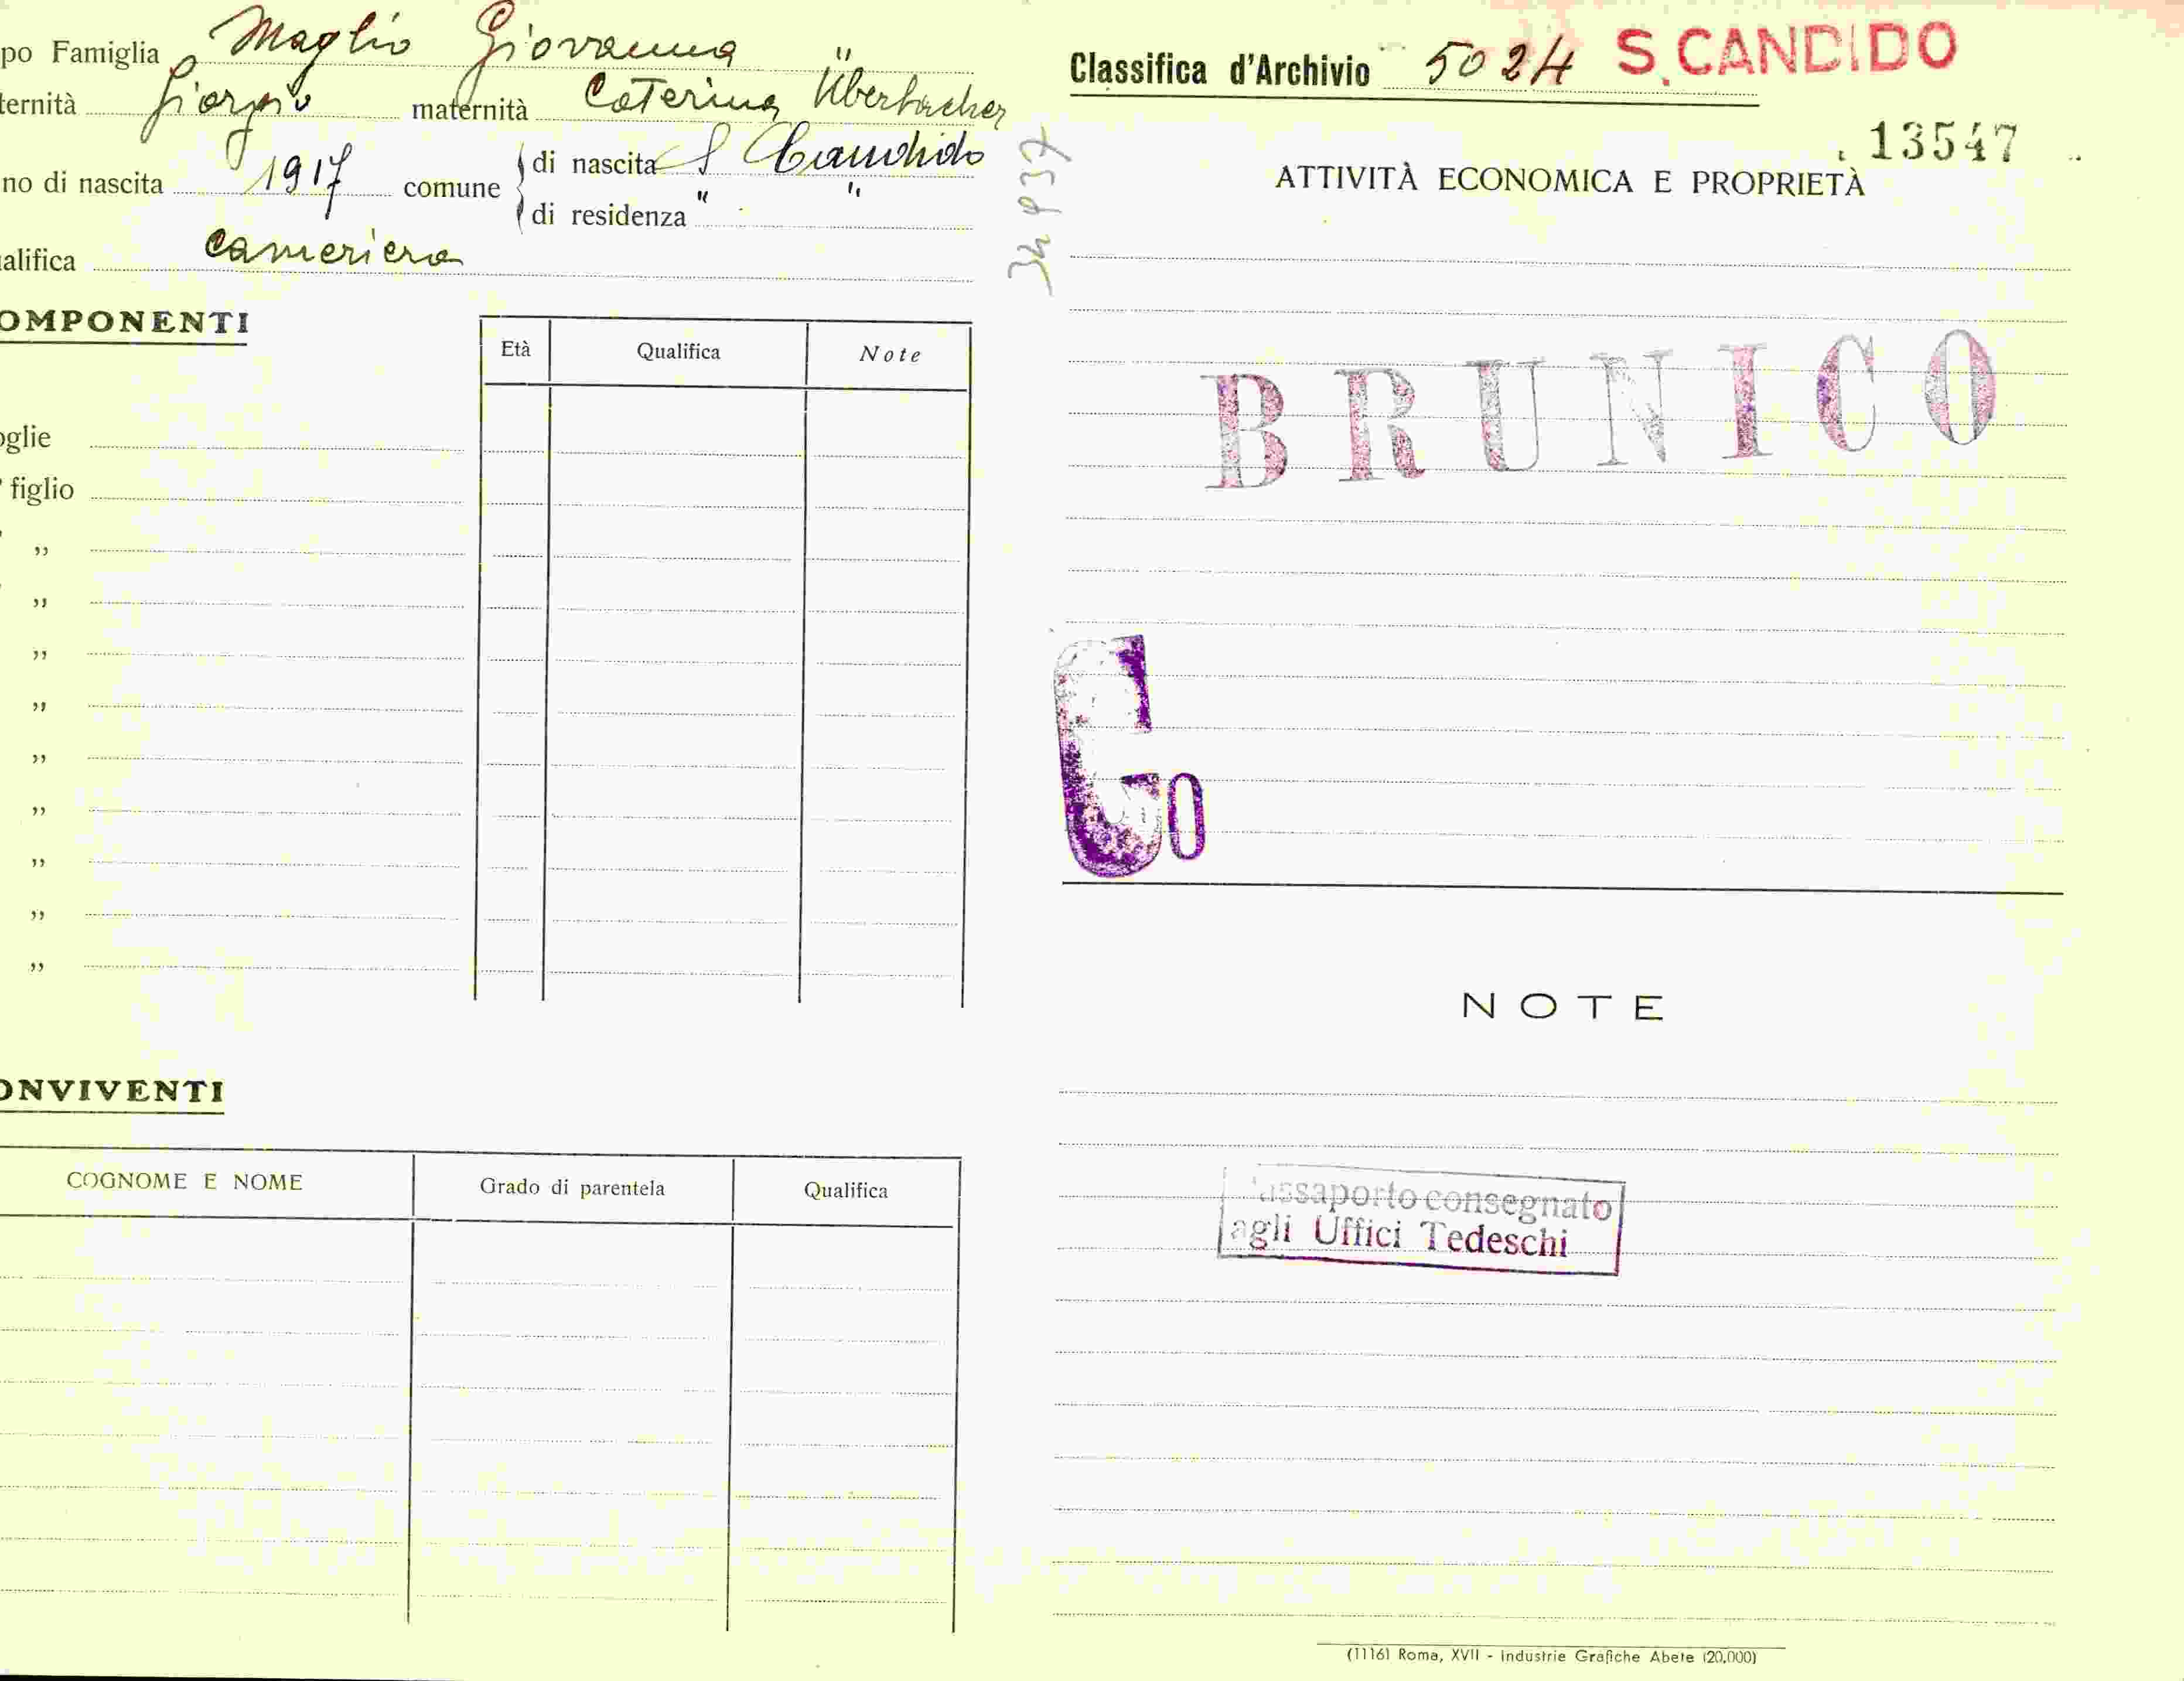 po Famiglia Maglio Giovanna
ternità Giorgio maternità Caterina Überbacher
no di nascita 1917 comune di nascita S Candido
di residenza " "
alifica cameriera
OMPONENTI
Età Qualifica Note
oglie
figlio
"
"
"
"
"
"
"
"
"
ONVIVENTI
COGNOME E NOME Grado di parentela Qualifica
Classifica d'Archivio 5024 S.CANDIDO
13547
ATTIVITÀ ECONOMICA E PROPRIETÀ
BRUNICO
NOTE
assaporto consegnato
agli Uffici Tedeschi
(1116) Roma, XVII - Industrie Grafiche Abete (20.000)